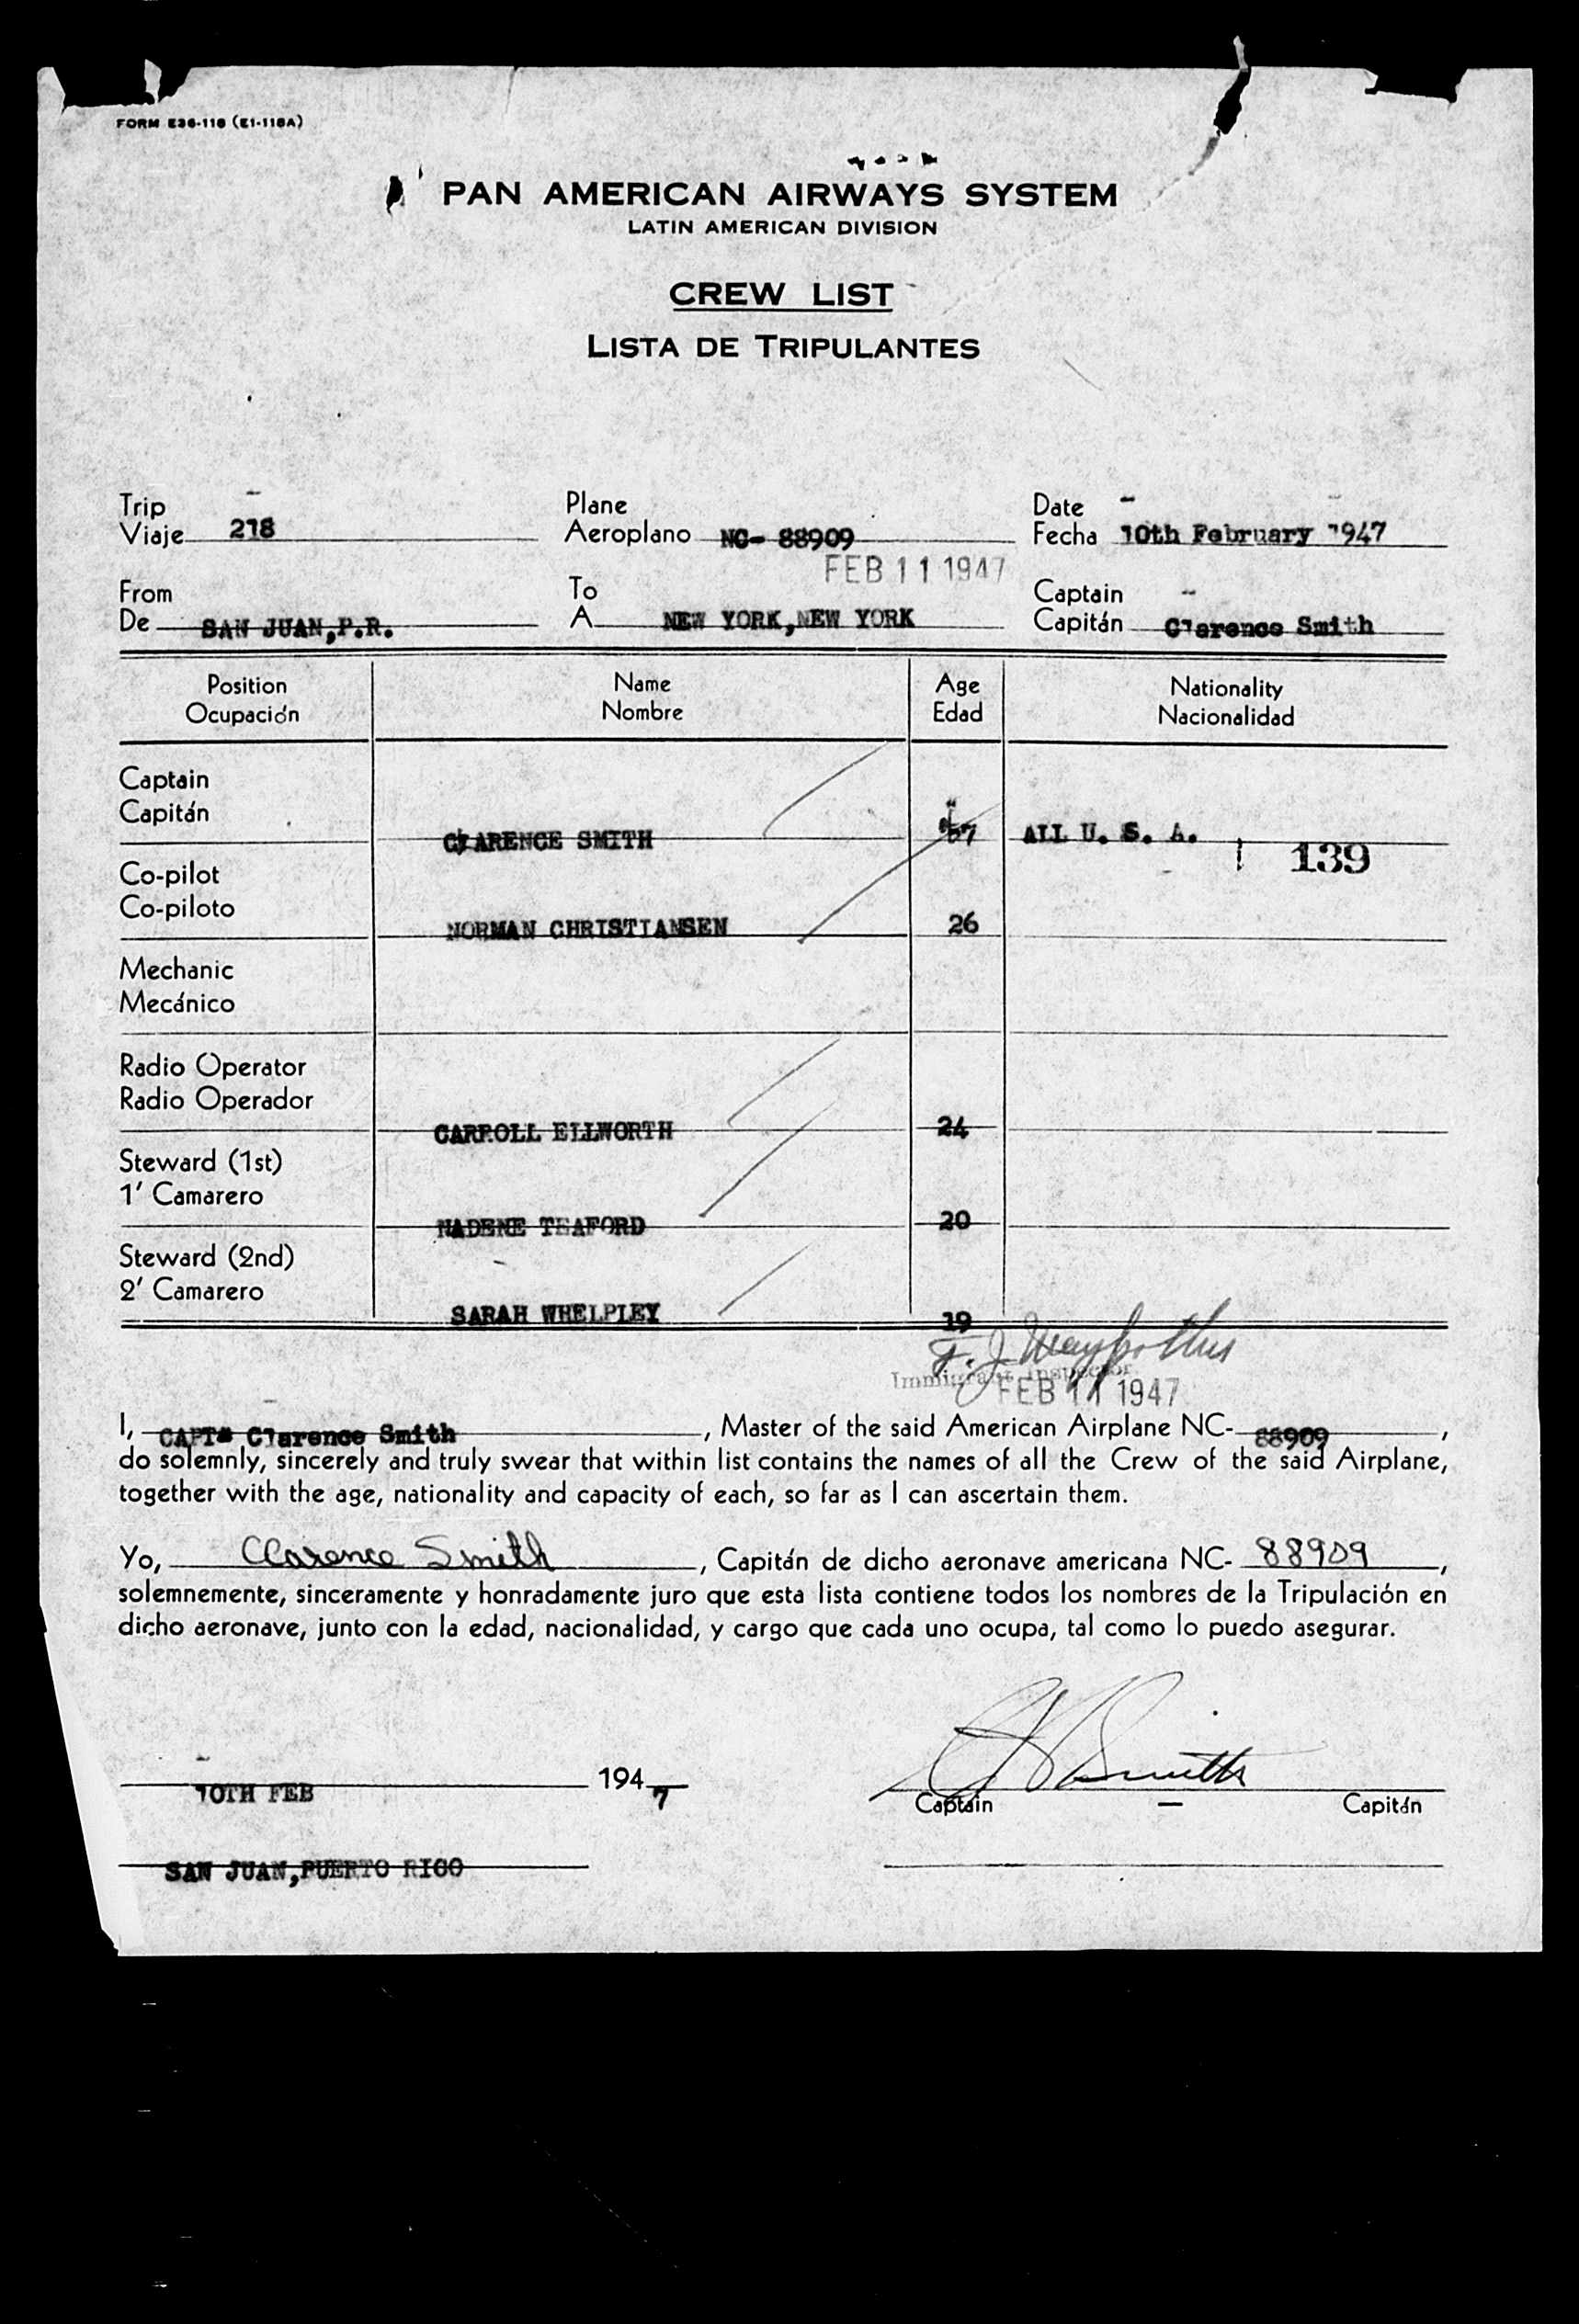 FORM E36-118 (E1-118A)
PAN AMERICAN AIRWAYS SYSTEM
LATIN AMERICAN DIVISION
CREW LIST
LISTA DE TRIPULANTES
Trip Plane Date
Viaje 218 Aeroplano NC- 88909 Fecha 10th February 1947
FEB 11 1947
From To Captain
De SAN JUAN,P.R. A NEW YORK,NEW YORK Capitán Clarence Smith
Position Name Age Nationality
Ocupación Nombre Edad Nacionalidad
Captain
Capitán
CLARENCE SMITH ALL U. S. A.
139
Co-pilot
Co-piloto
NORMAN CHRISTIANSEN 26
Mechanic
Mecánico
Radio Operator
Radio Operador
CARROLL ELLWORTH 24
Steward (1st)
1' Camarero
NADENE TEAFORD 20
Steward (2nd)
2' Camarero
SARAH WHELPLEY 19
F. J.
Immigrant Inspector
FEB 11 1947
I, CAPT. Clarence Smith, Master of the said American Airplane NC- 88909,
do solemnly, sincerely and truly swear that within list contains the names of all the Crew of the said Airplane,
together with the age, nationality and capacity of each, so far as I can ascertain them.
Yo, Clarence Smith, Capitán de dicho aeronave americana NC- 88909,
solemnemente, sinceramente y honradamente juro que esta lista contiene todos los nombres de la Tripulación en
dicho aeronave, junto con la edad, nacionalidad, y cargo que cada uno ocupa, tal como lo puedo asegurar.
10TH FEB 194 7 Smith
Captain — Capitán
SAN JUAN,PUERTO RICO